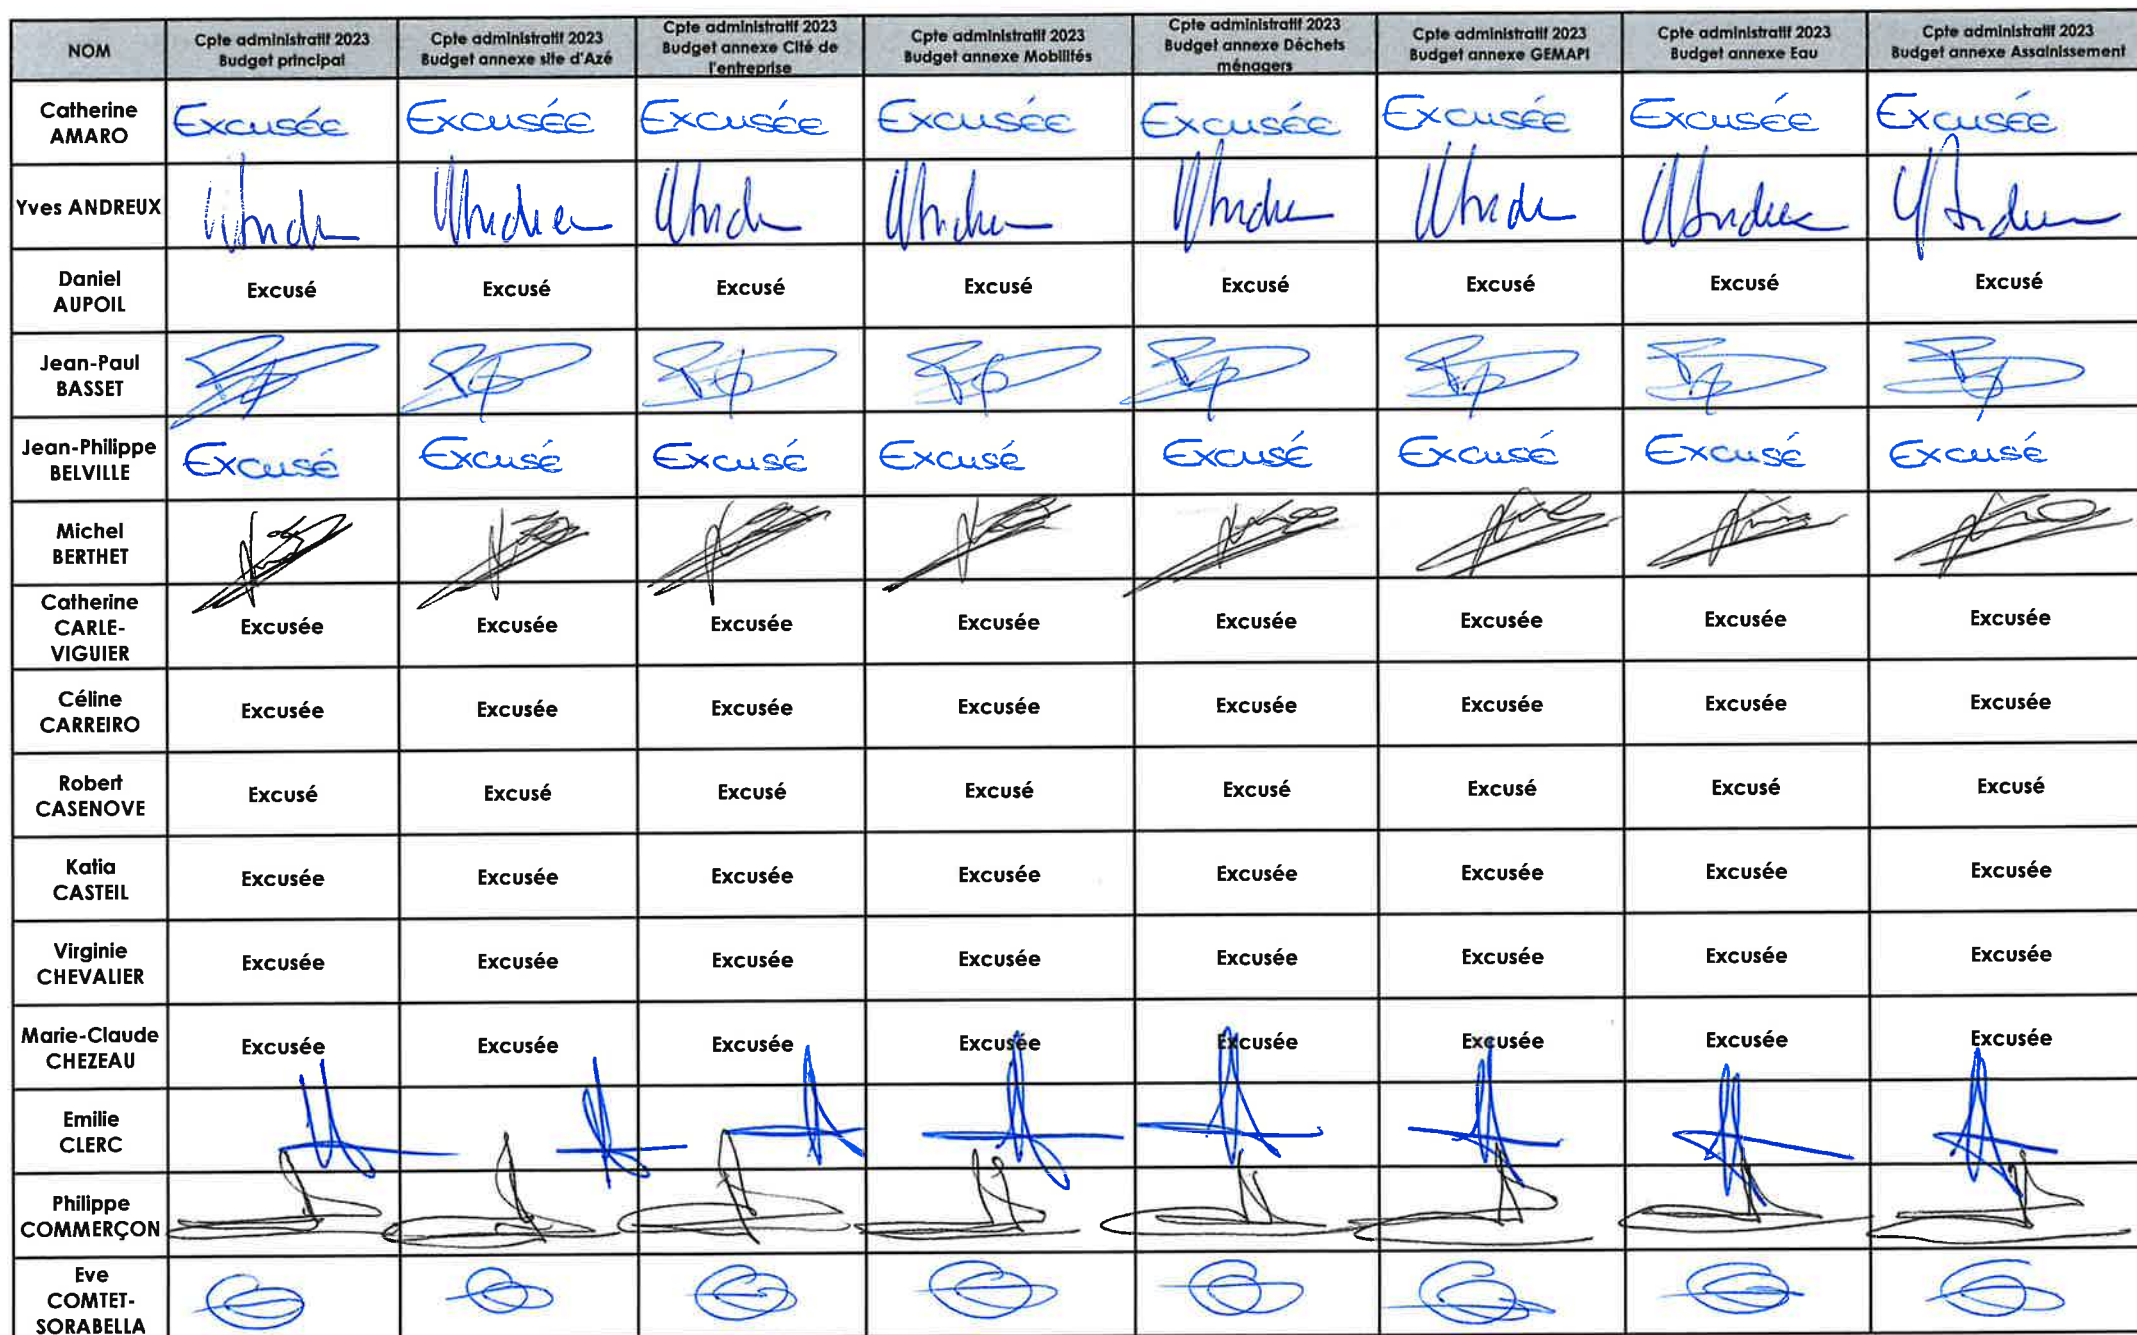 NOM
Cpte administratif 2023
Budget principal
Cpte administratif 2023
Budget annexe site d'Azé
Cpte administratif 2023
Budget annexe Cité de
l'entreprise
Cpte administratif 2023
Budget annexe Mobilités
Cpte administratif 2023
Budget annexe Déchets
ménagers
Cpte administratif 2023
Budget annexe GEMAPI
Cpte administratif 2023
Budget annexe Eau
Cpte administratif 2023
Budget annexe Assainissement
Catherine
AMARO
Excusée Excusée Excusée Excusée Excusée Excusée Excusée Excusée
Yves ANDREUX
Daniel
AUPOIL
Excusé Excusé Excusé Excusé Excusé Excusé Excusé Excusé
Jean-Paul
BASSET
Jean-Philippe
BELVILLE
Excusé Excusé Excusé Excusé Excusé Excusé Excusé Excusé
Michel
BERTHET
Catherine
CARLE-
VIGUIER
Excusée Excusée Excusée Excusée Excusée Excusée Excusée Excusée
Céline
CARREIRO
Excusée Excusée Excusée Excusée Excusée Excusée Excusée Excusée
Robert
CASENOVE
Excusé Excusé Excusé Excusé Excusé Excusé Excusé Excusé
Katia
CASTEIL
Excusée Excusée Excusée Excusée Excusée Excusée Excusée Excusée
Virginie
CHEVALIER
Excusée Excusée Excusée Excusée Excusée Excusée Excusée Excusée
Marie-Claude
CHEZEAU
Excusée Excusée Excusée Excusée Excusée Excusée Excusée Excusée
Emilie
CLERC
Philippe
COMMERÇON
Eve
COMTET-
SORABELLA